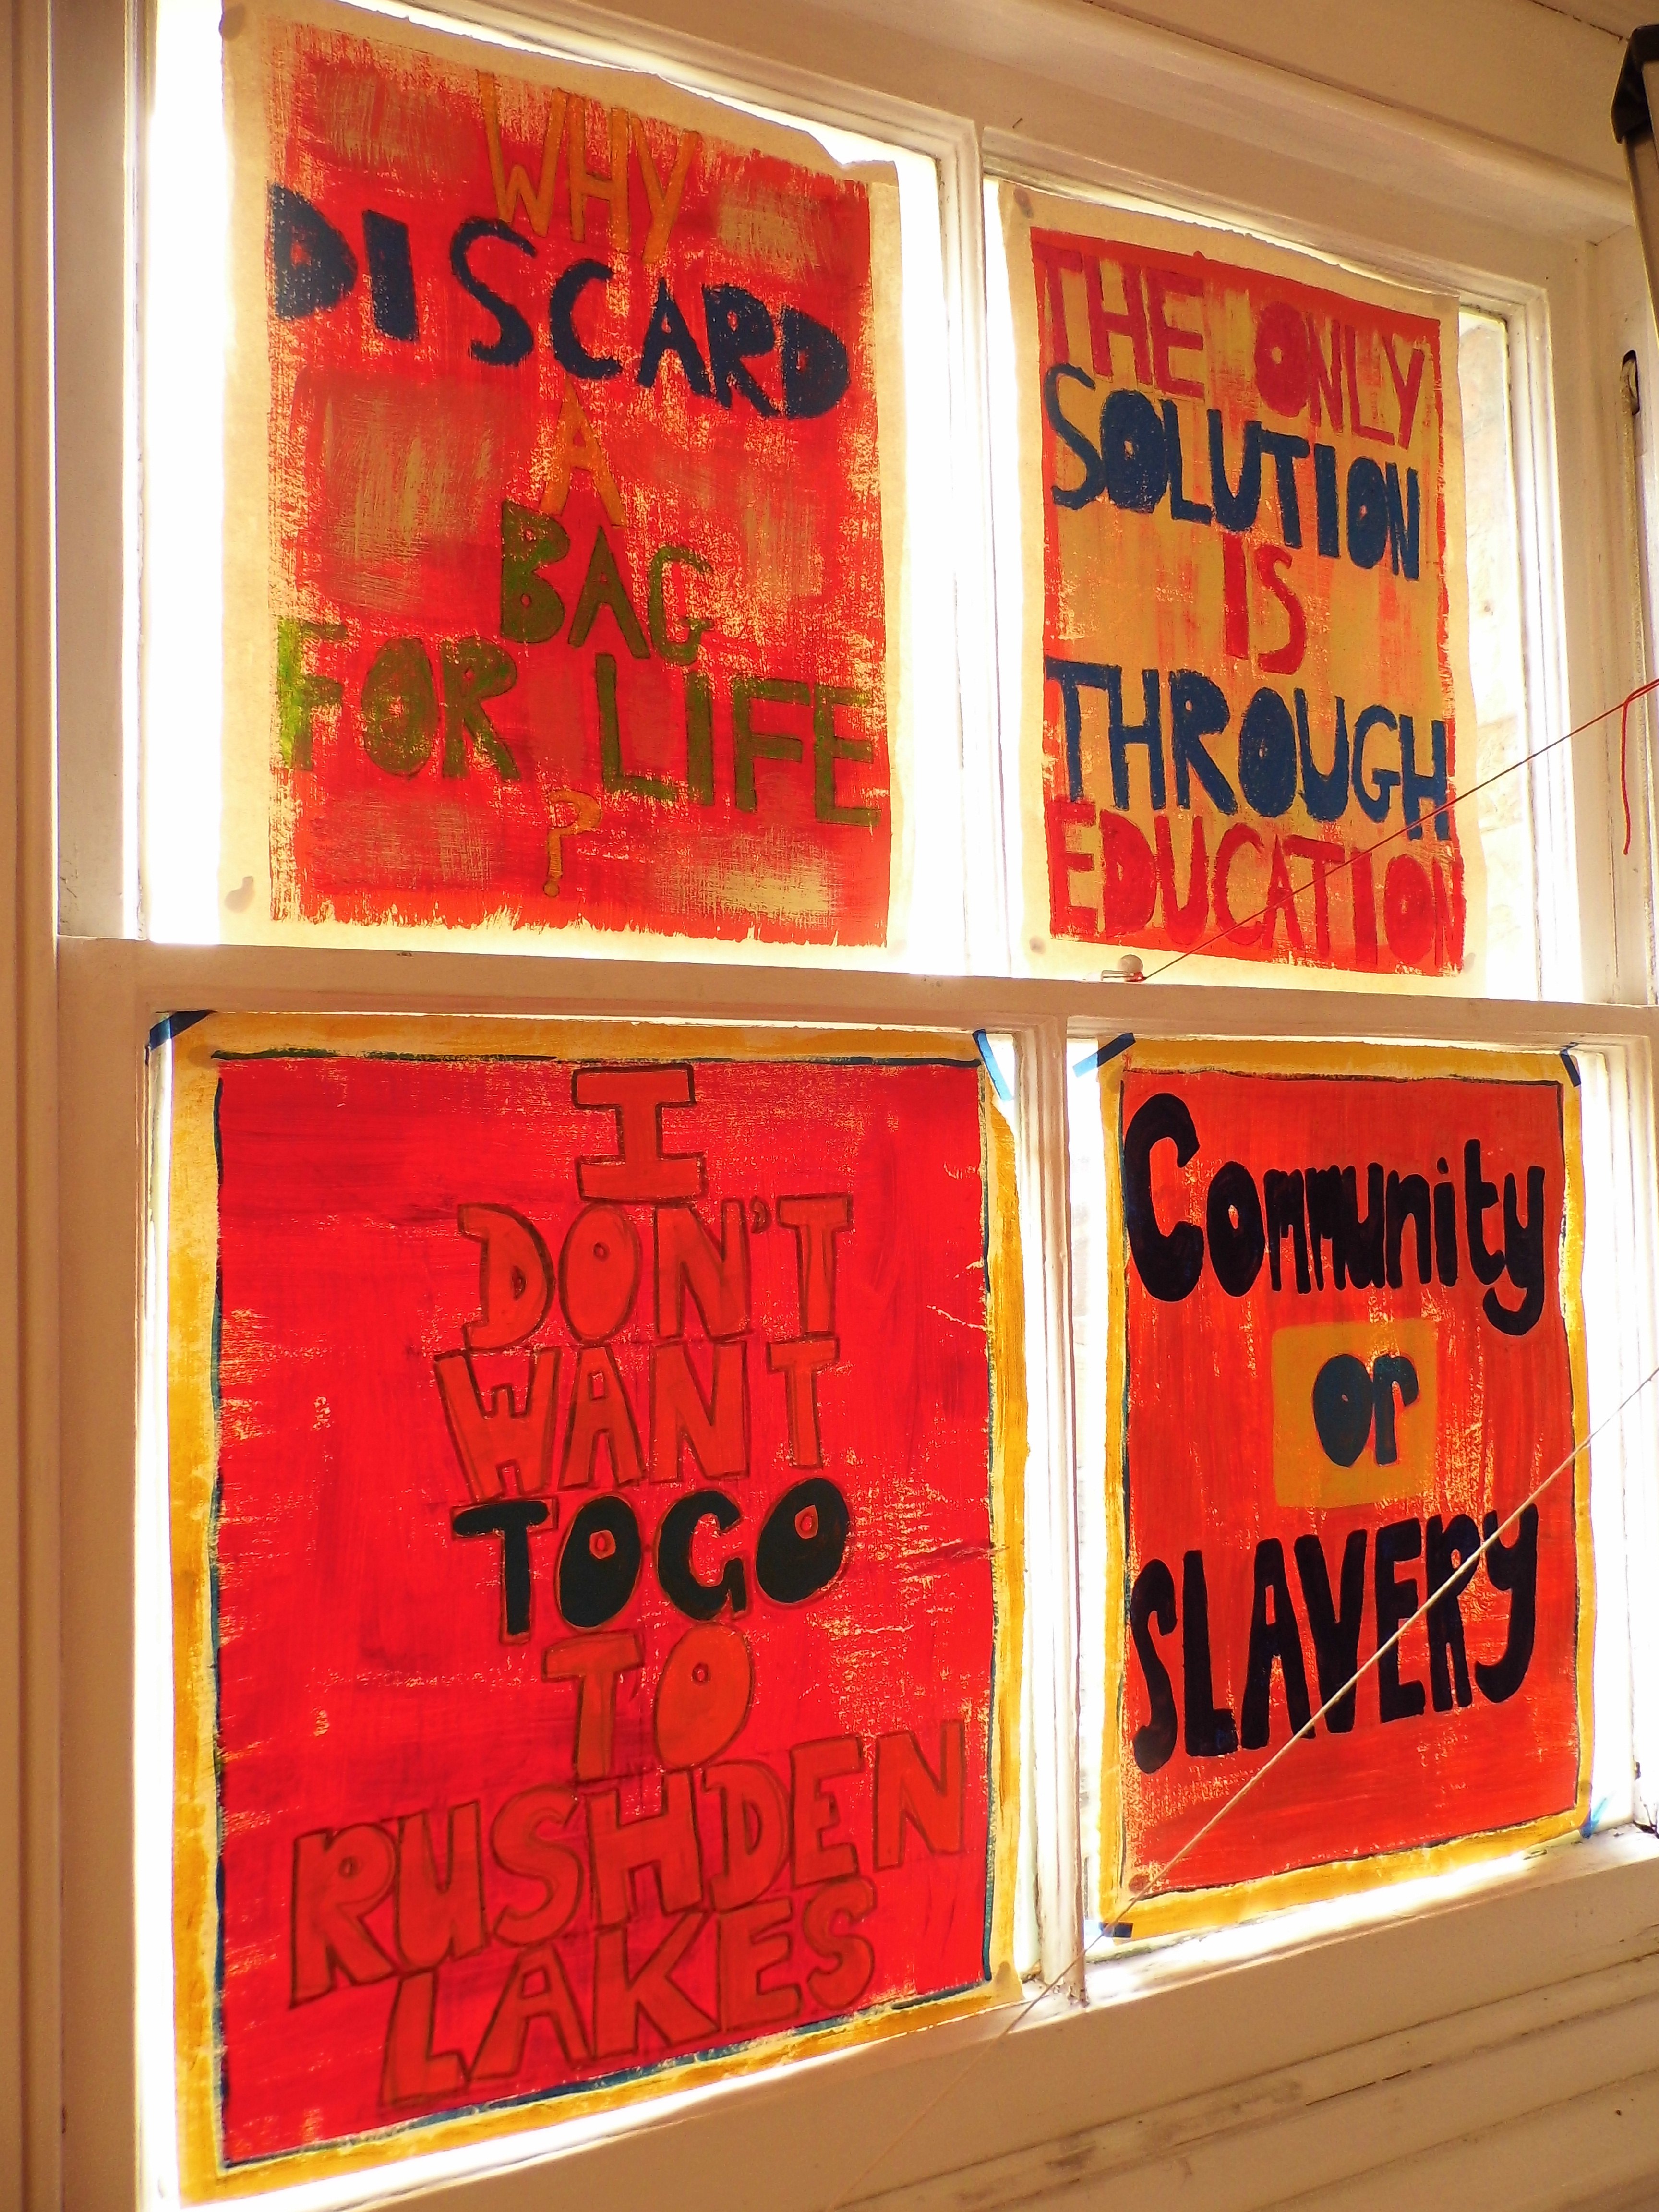 WHY
DISCARD
A
BAG
FOR LIFE
?
THE ONLY
SOLUTION
IS
THROUGH
EDUCATION
I
DON'T
WANT
TO GO
TO
RUSHDEN
LAKES
Community
or
SLAVERY